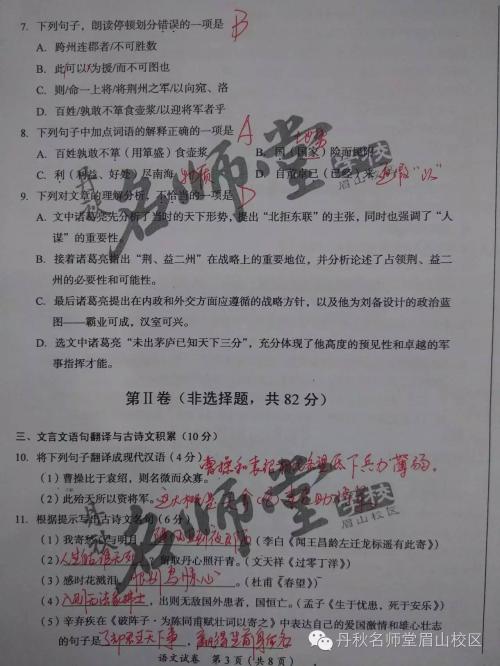 7. 下列句子，朗读停顿划分错误的一项是 B
A. 跨州连郡者/不可胜数
B. 此可以/为援/而不可图也
C. 则/命一上将/将荆州之军/以向宛、洛
D. 百姓/孰敢不箪食壶浆/以迎将军者乎
8. 下列句子中加点词语的解释正确的一项是 A
A. 百姓孰敢不箪（用箪盛）食壶浆
B. 国（国家）险而民附
C. 利（利益、好处）尽南海
D. 自董卓已（已经）来 "以"
9. 下列对文章的理解分析，不恰当的一项是 D
A. 文中诸葛亮先分析了当时的天下形势，提出“北拒东联”的主张，同时也强调了“人
谋”的重要性。
B. 接着诸葛亮指出“荆、益二州”在战略上的重要地位，并分析论述了占领荆、益二
州的必要性和可能性。
C. 最后诸葛亮提出在内政和外交方面应遵循的战略方针，以及他为刘备设计的政治蓝
图——霸业可成，汉室可兴。
D. 选文中诸葛亮“未出茅庐已知天下三分”，充分体现了他高度的预见性和卓越的军
事指挥才能。
第Ⅱ卷（非选择题，共 82 分）
三、文言文语句翻译与古诗文积累（10 分）
10. 将下列句子翻译成现代汉语（4 分）
曹操和袁绍相比 下兵力薄弱。
（1）曹操比于袁绍，则名微而众寡。
（2）此殆天所以资将军。
11. 根据提示写出古诗文名句（6 分）
（1）我寄愁心与明月，（李白《闻王昌龄左迁龙标遥有此寄》）
（2）人生自古谁无死，留取丹心照汗青。（文天祥《过零丁洋》）
（3）感时花溅泪，恨别鸟惊心。（杜甫《春望》）
（4）入则无法家拂士，出则无敌国外患者，国恒亡。（孟子《生于忧患，死于安乐》）
（5）辛弃疾在《破阵子·为陈同甫赋壮词以寄之》中表达自己的爱国激情和雄心壮志
的句子是了却君王天下事，赢得生前身后名
语文试卷 第 3 页（共 8 页）
丹秋名师堂眉山校区